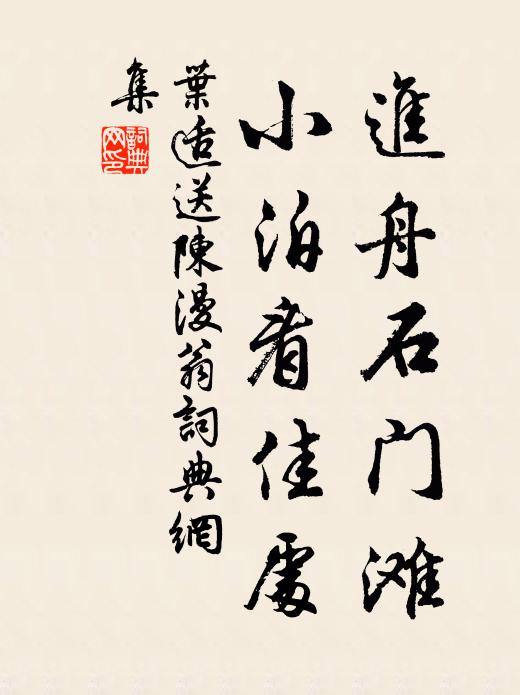 進舟石门滩
小泊看佳處
葉适送陳漫翁詞典網
集
詞典网印